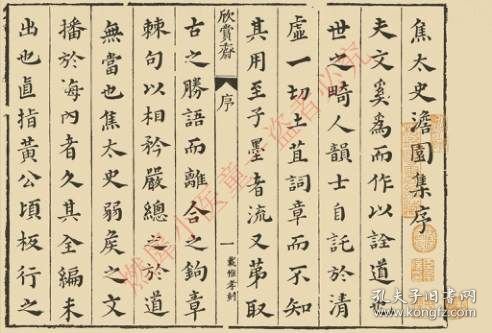 焦太史澹園集序
夫文奚為而作以詮道也
世之畸人韻士自託於清
虛一切土苴詞章而不知
其用至子墨者流又苐取
欣賞齋
序
一
戴惟孝刻
古之勝語而離合之鉤章
棘句以相矜嚴總之於道
無當也焦太史弱矦之文
播於海內者久其全編未
出也直指黃公頃板行之
小医童
盗者必究
孔夫子旧书网